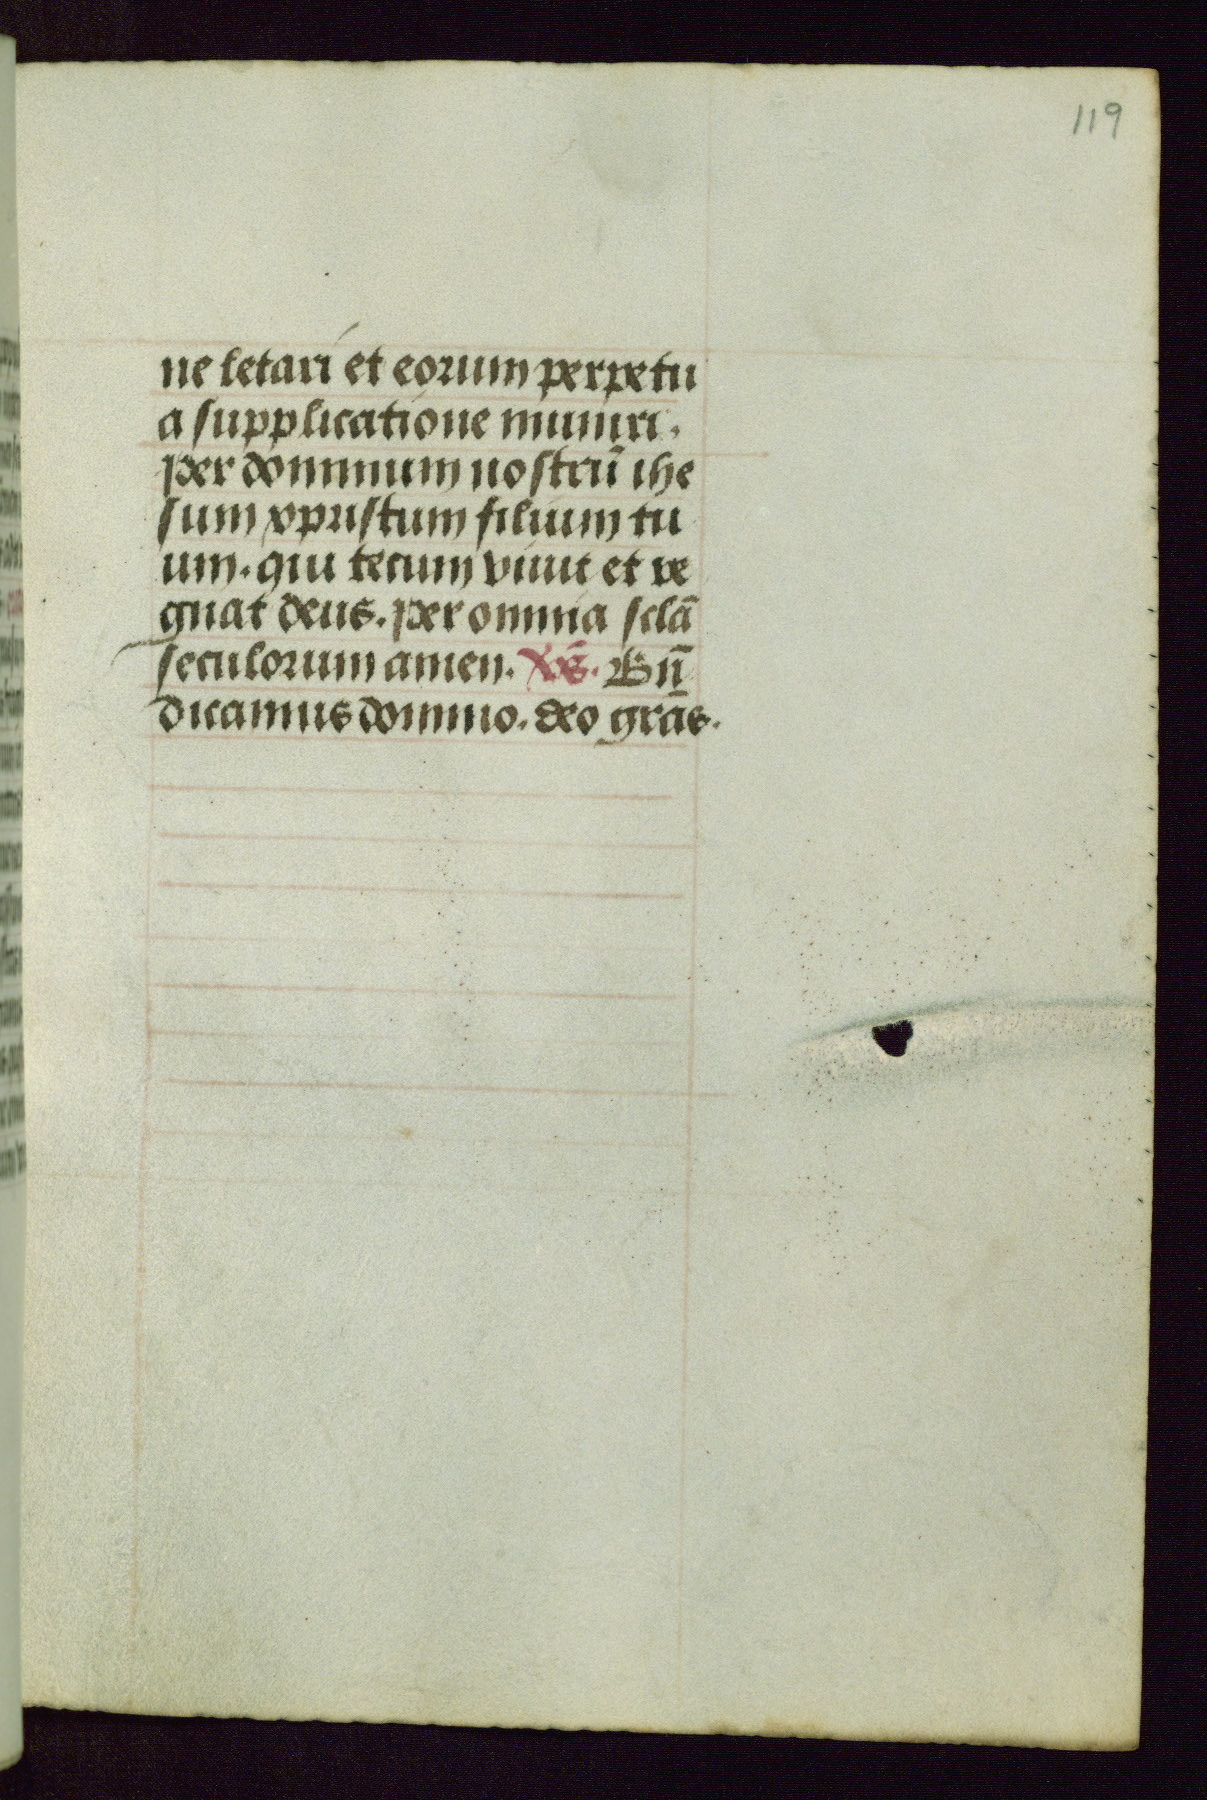 119
ne letari et eorum perpetu
a supplicatione muniri.
per dominum nostrū ihe
sum xpristum filium tu
um. qui tecum viuit et re
gnat deus. per omnia sclā
seculorum amen. Bn̄
dicamus domino. deo grās.